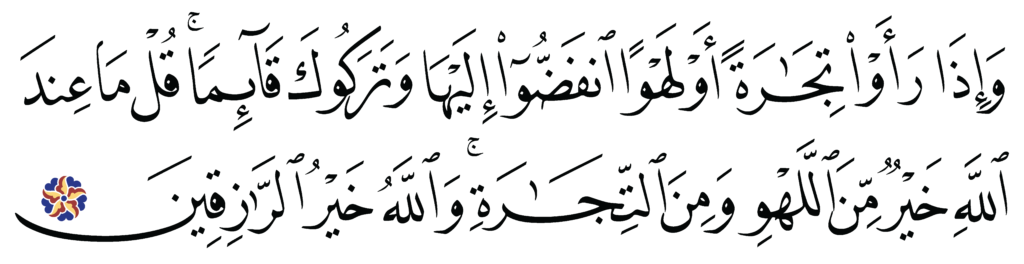 وَإِذَا رَأَوْا۟ تِجَـٰرَةً أَوْ لَهْوًا ٱنفَضُّوٓا۟ إِلَيْهَا وَتَرَكُوكَ قَآئِمًا ۚ قُلْ مَا عِندَ
ٱللَّهِ خَيْرٌ مِّنَ ٱللَّهْوِ وَمِنَ ٱلتِّجَـٰرَةِ ۚ وَٱللَّهُ خَيْرُ ٱلرَّٰزِقِينَ